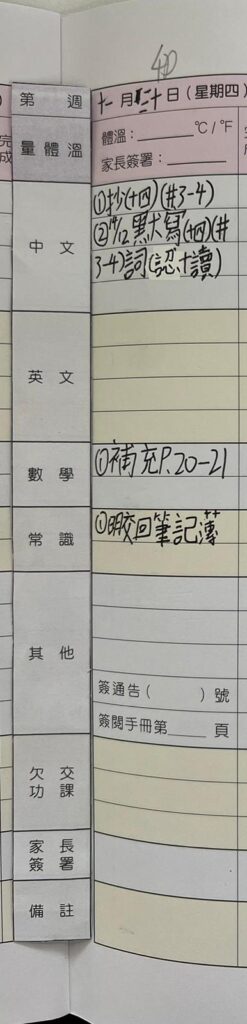 4D
第 週
十一月二十日(星期四)
量體溫
體溫:______°C/°F
家長簽署:______
中文
①抄(十四)(#3-4)
②1/12 默寫(十四)(#
3-4)詞(認+讀)
英文
數學
①補充P.20-21
常識
①明交回筆記薄
其他
簽通告( )號
簽閱手冊第____頁
欠交
功課
家長
簽署
備註
完成